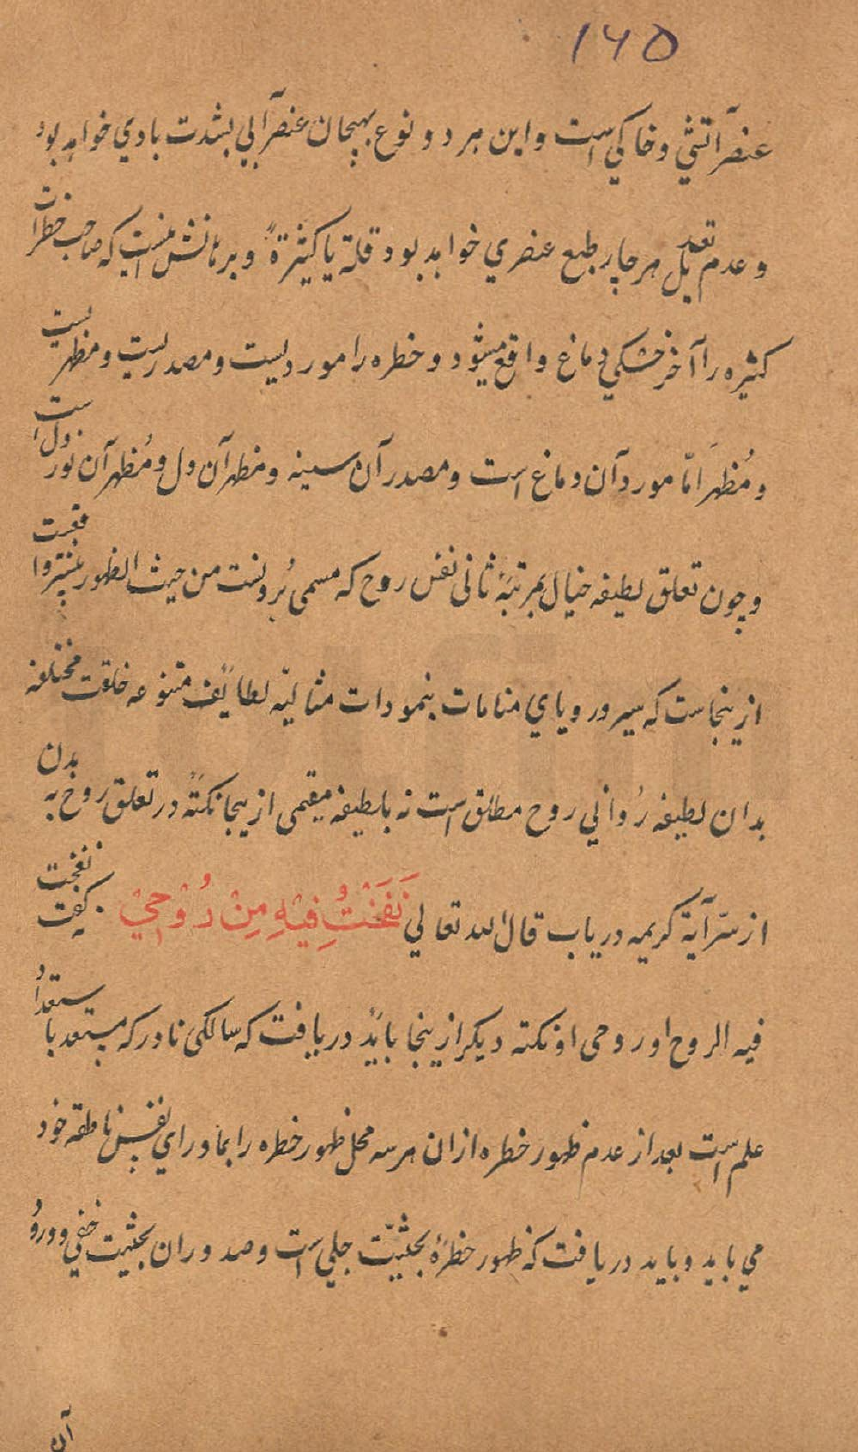 ۱۶۵
عنصر آتشی و خاکی است و این هر دو نوع بهیجان عنصر آبی بشدت بادی خواهد بود
و عدم تعدیل هر چار طبع عنصری خواهد بود قلة یا کثیرة و برهانش اینست که صاحب خطرات
کثیره را آخر خشکی دماغ واقع میشود و خطره را موردیست و مصدریست و مظهریست
و مُظهر امّا مورد آن دماغ است و مصدر آن سینه و مظهر آن دل و مُظهر آن نور دل است
و چون تعلق لطیفه خیال بمرتبهٔ ثانی نفس روح که مسمی است من حیث الظهور
از ینجاست که سیر و رویای منامات بنمودات مثالیّه لطایف متنوعه خلقت مختلفه
بدان لطیفه روانی روح مطلق است نه بلطیفه مقیمی از ینجا نکتهٔ در تعلق روح به بدن
از سرّ آیة کریمه دریاب قال الله تعالی نَفَخْتُ فِیْهِ مِنْ رُوْحِيْ کیفت نفخت
فیه الروح او روحی او نکته دیگر از ینجا باید دریافت که سالکی نادر که مستعد با ستعداد
علم است بعد از عدم ظهور خطره ازان هر سه محل ظهور خطره را بماورای نفس ناطقه خود
می باید و باید دریافت که ظهور خطرهٔ بحیثیّت جلی است و صدوران بحیثیت خفی و ورود
آن